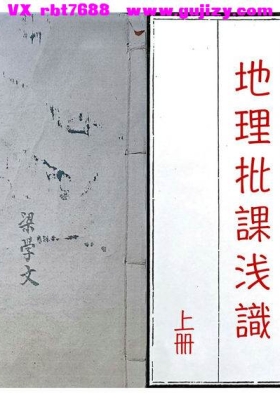 VX rbt7688 www.gujizy.com
地理批課浅識
上册
梁学文